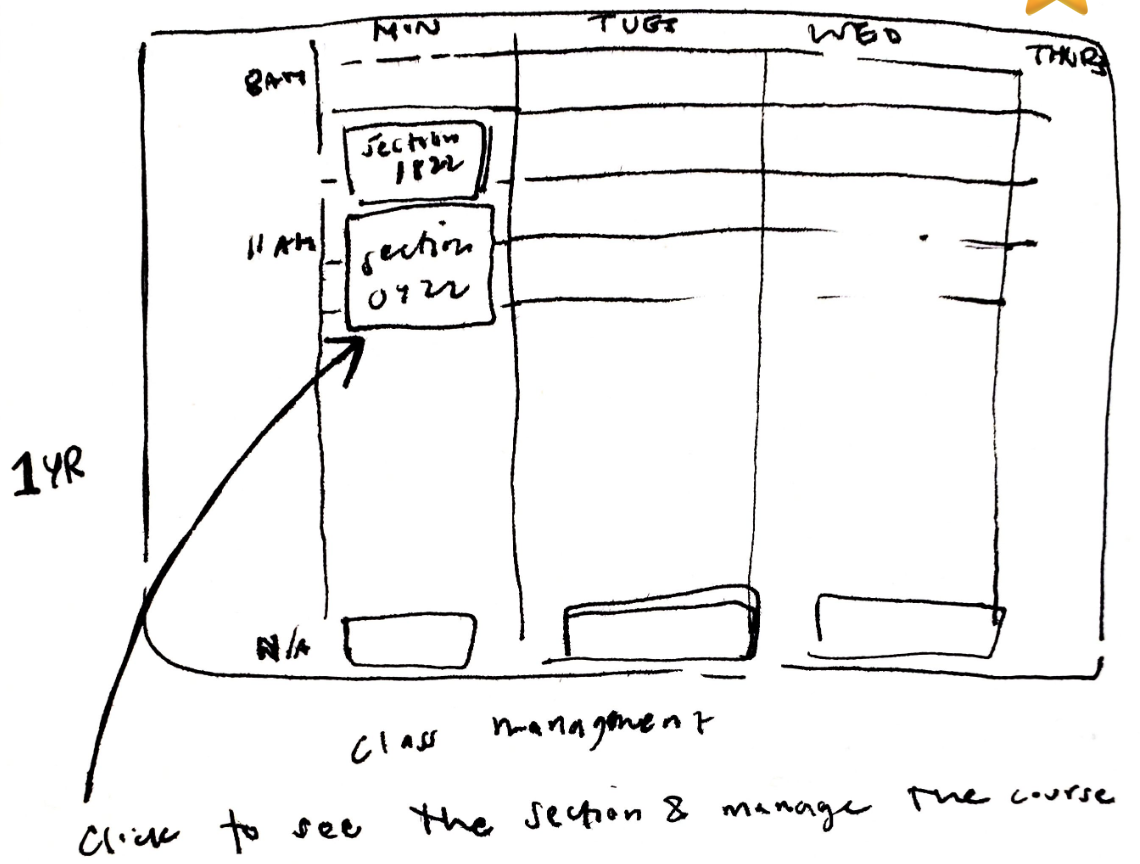 MON TUES WED THURS
8AM
section
1822
11 AM
section
0422
1 YR
N/A
class managment
Click to see the section & manage the course